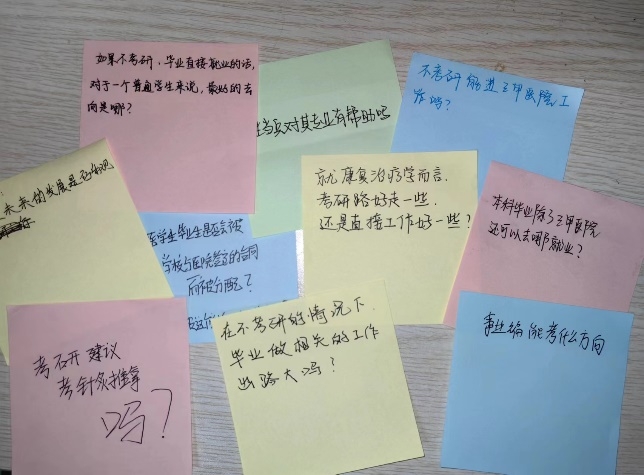 如果不考研，毕业直接就业的话，
对于一个普通学生来说，最好的去
向是哪？
当兵对其专业有帮助吗
不考研能进三甲医院工
作吗？
未来的发展是否好吧
就康复治疗学而言，
考研路好走一些，
还是直接工作好一些？
本科毕业除了三甲医院
还可以去哪就业？
医学生毕业生是否会被
学校与医院签有的合同
所被分配？
考研建议
考针灸推拿
吗？
在不考研的情况下
毕业做相关的工作
出路大吗？
事业编能考什么方向